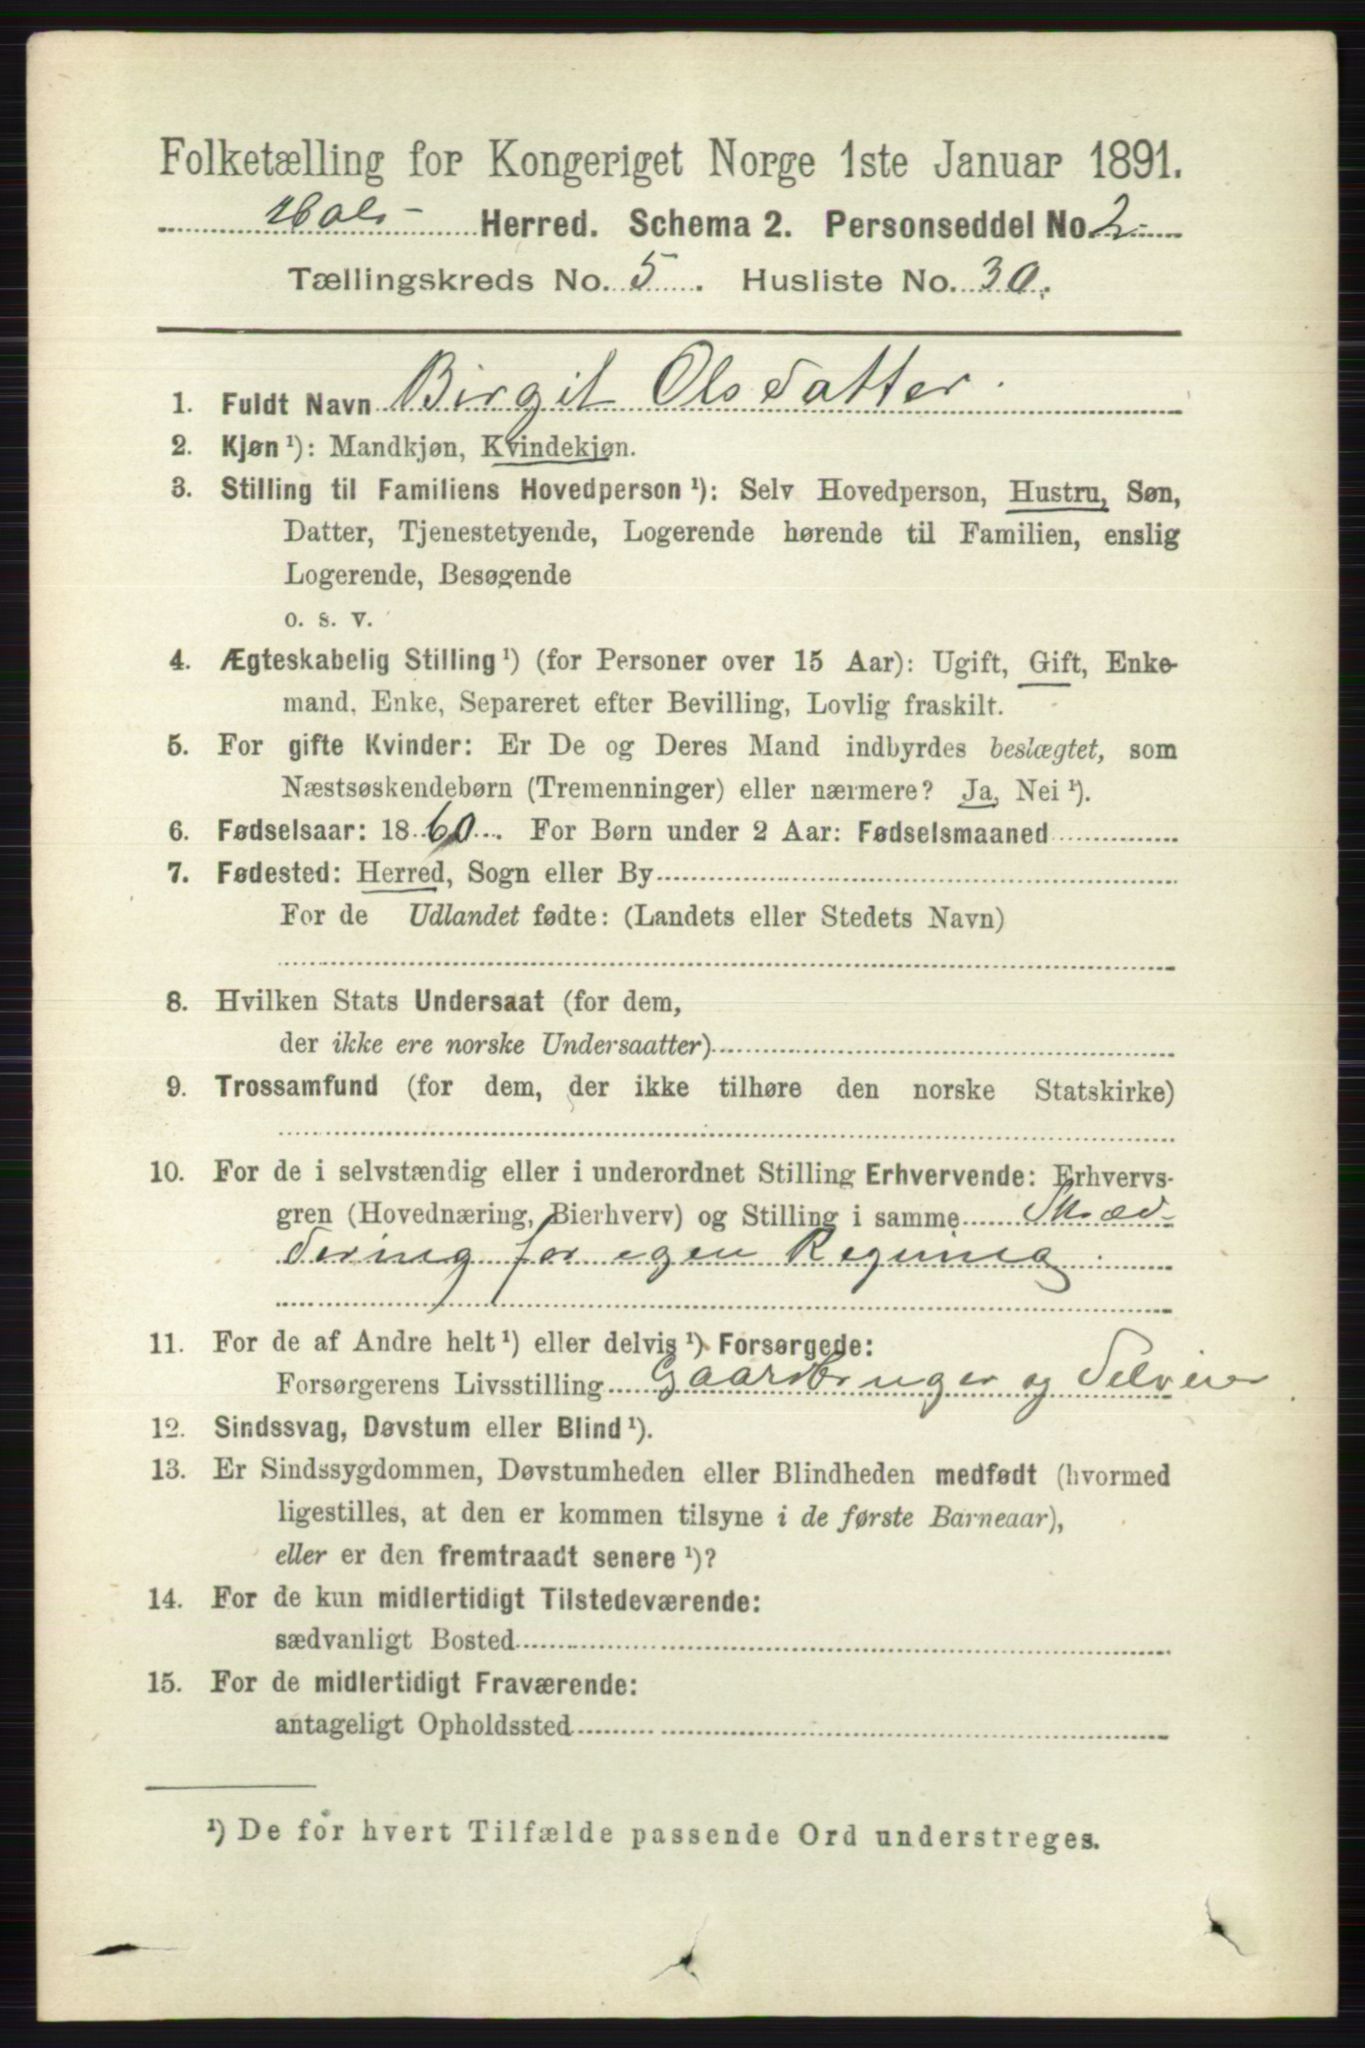 Folketælling for Kongeriget Norge 1ste Januar 1891.
Hols Herred. Schema 2. Personseddel No. 2
Tællingskreds No. 5. Husliste No. 30.
1. Fuldt Navn Birgit Olsdatter.
2. Kjøn ¹): Mandkjøn, Kvindekjøn.
3. Stilling til Familiens Hovedperson ¹): Selv Hovedperson, Hustru, Søn,
Datter, Tjenestetyende, Logerende hørende til Familien, enslig
Logerende, Besøgende
o. s. v.
4. Ægteskabelig Stilling ¹) (for Personer over 15 Aar): Ugift, Gift, Enke-
mand, Enke, Separeret efter Bevilling, Lovlig fraskilt.
5. For gifte Kvinder: Er De og Deres Mand indbyrdes beslægtet, som
Næstsøskendebørn (Tremenninger) eller nærmere? Ja, Nei ¹).
6. Fødselsaar: 1860. For Børn under 2 Aar: Fødselsmaaned
7. Fødested: Herred, Sogn eller By
For de Udlandet fødte: (Landets eller Stedets Navn)
8. Hvilken Stats Undersaat (for dem,
der ikke ere norske Undersaatter)
9. Trossamfund (for dem, der ikke tilhøre den norske Statskirke)
10. For de i selvstændig eller i underordnet Stilling Erhvervende: Erhvervs-
gren (Hovednæring, Bierhverv) og Stilling i samme Skræd-
dering for egen Regning.
11. For de af Andre helt ¹) eller delvis ¹) Forsørgede:
Forsørgerens Livsstilling Gaardbruger og Selveier
12. Sindssvag, Døvstum eller Blind ¹).
13. Er Sindssygdommen, Døvstumheden eller Blindheden medfødt (hvormed
ligestilles, at den er kommen tilsyne i de første Barneaar),
eller er den fremtraadt senere ¹)?
14. For de kun midlertidigt Tilstedeværende:
sædvanligt Bosted
15. For de midlertidigt Fraværende:
antageligt Opholdssted
¹) De for hvert Tilfælde passende Ord understreges.